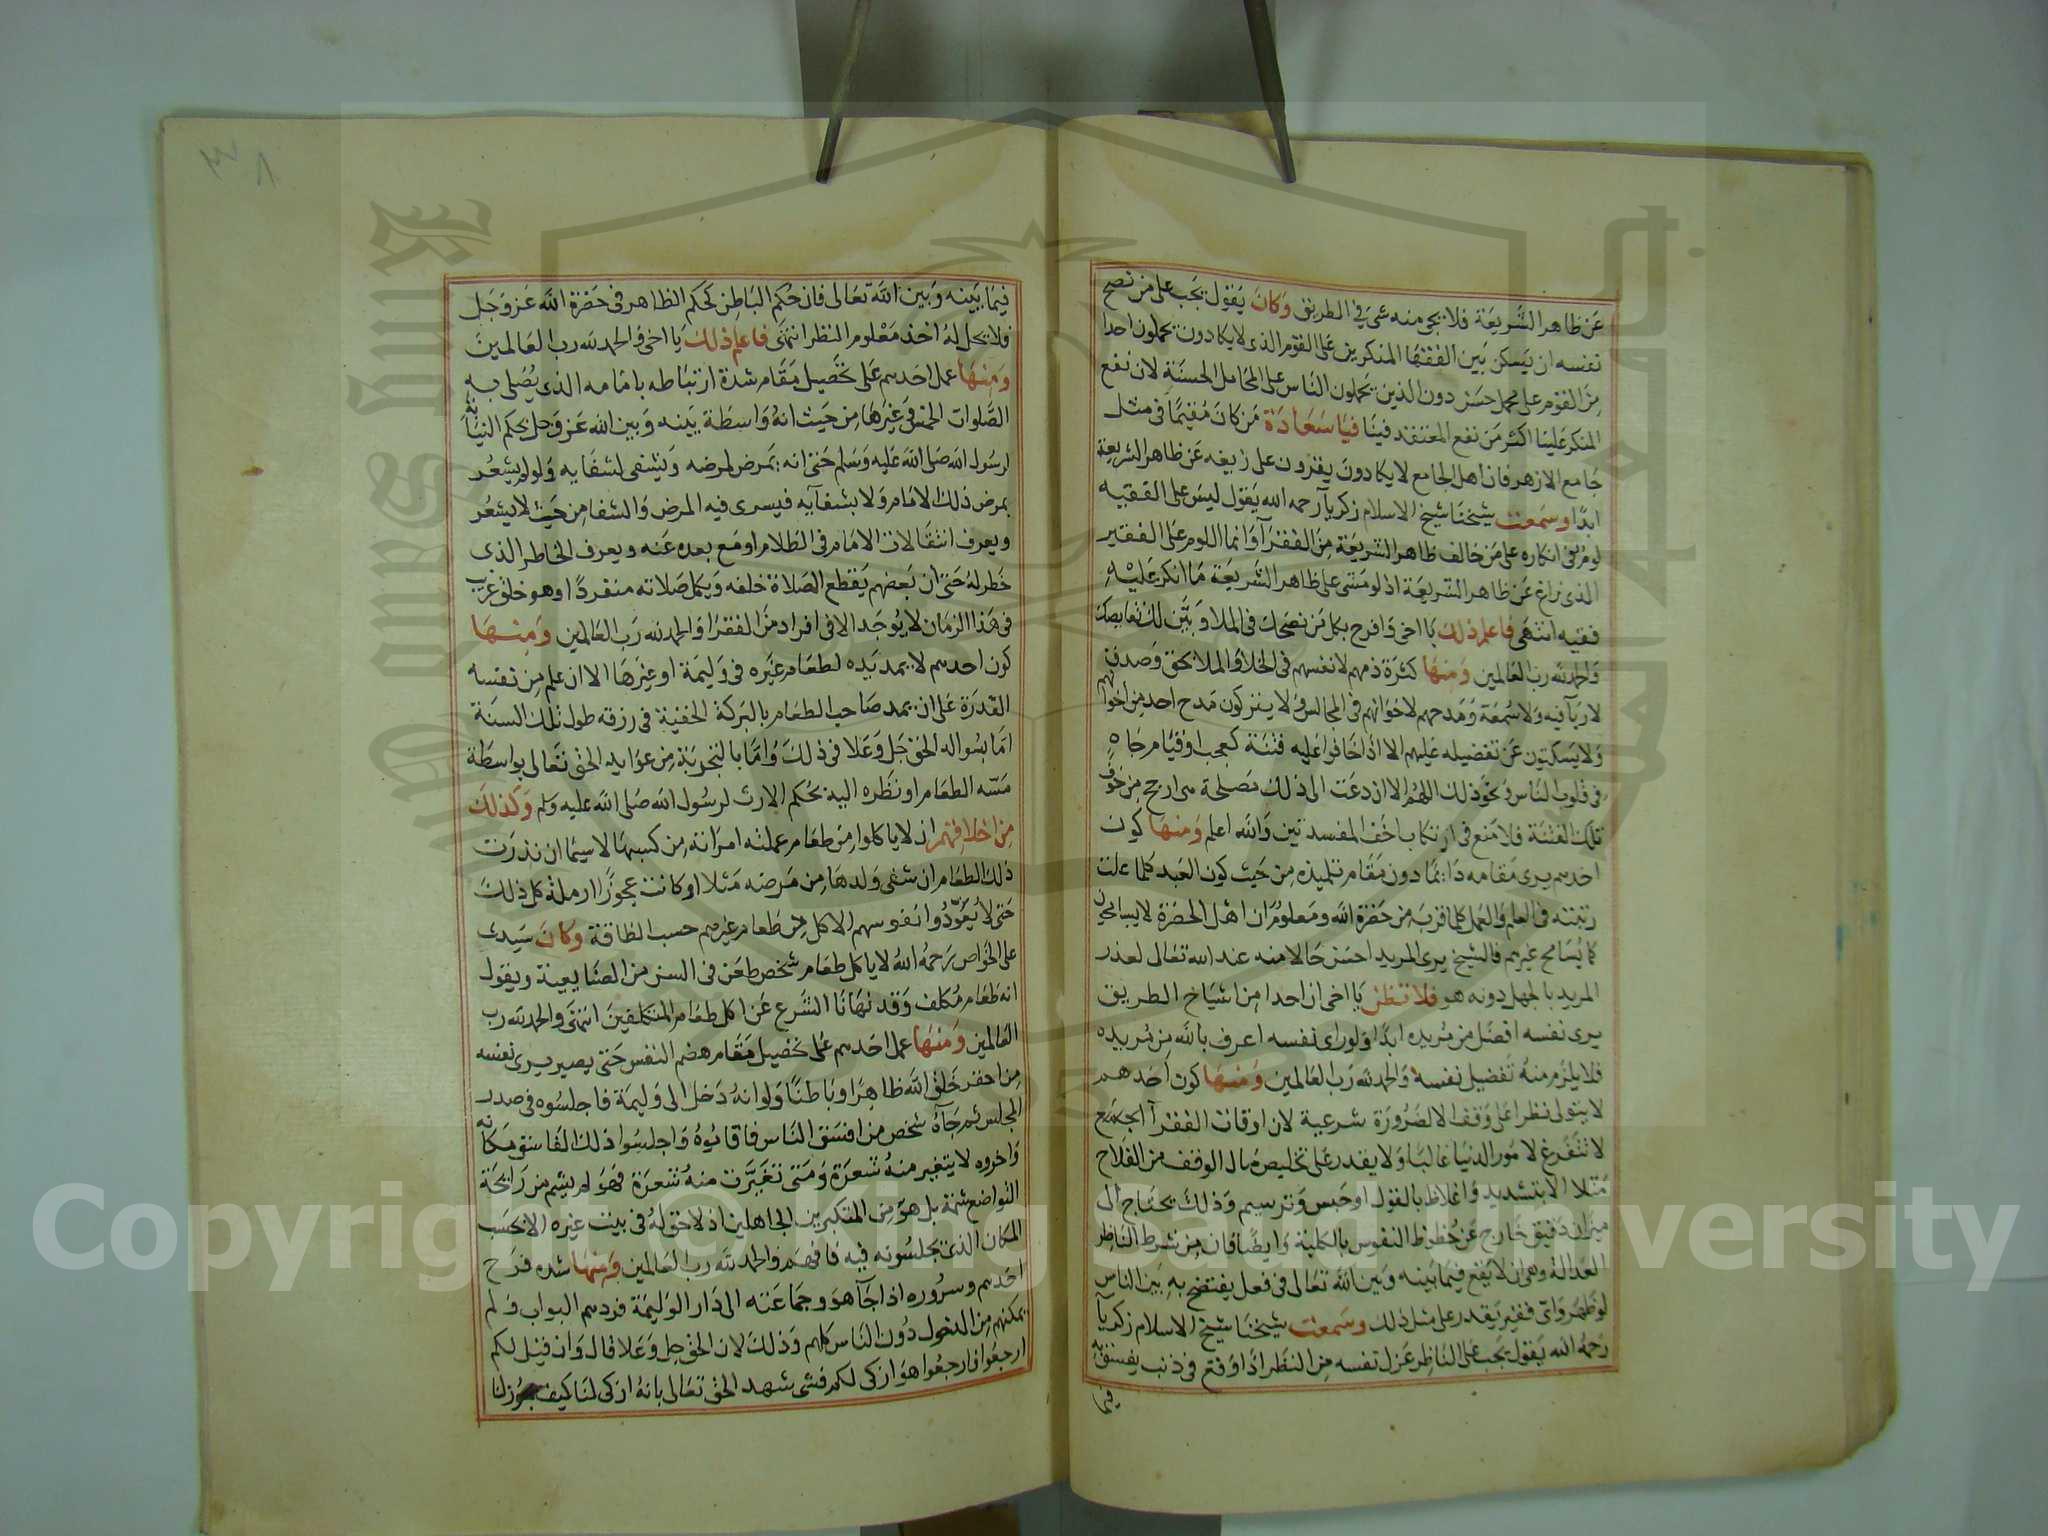 عن ظاهر الشريعة فلا يجي منه شي في الطريق وكان يقول يجب على من نصح
نفسه ان يسكن بين الفقها المنكرين على القوم الذي لا يكادون يحملون احدا
من القوم على محمل حسن دون الذين يحملون الناس على المحامل الحسنة لان نفع
المنكر علينا اكثر من نفع المعتقد فينا فيا سعادة من كان مقيما في مثل
جامع الازهر فان اهل الجامع لا يكادون يقرون على زيغه عن ظاهر الشريعة
ابدا وسمعت شيخنا شيخ الاسلام زكريا رحمه الله يقول ليس على الفقيه
لوم في انكاره على من خالف ظاهر الشريعة من الفقرآ وانما اللوم على الفقير
الذي زاغ عن ظاهر الشريعة اذ لو مشى على ظاهر الشريعة ما انكر عليه
فقيه انتهى فاعلم ذلك يا اخي وافرح بكل من نصحك في الملا وبين لك نقايصك
والحمد لله رب العالمين ومنها كثرة ذمهم لانفسهم في الخلا والملا بحق وصدق
لا ريآ فيه ولا سمعة ومدحهم لاخوانهم في المجالس ولا يتركون مدح احد من اخوانهم
ولا يسكتون عن تفضيله عليهم الا اذا خافوا عليه فتنة كعجب او قيام جاه
في قلوب الناس ونحو ذلك اللهم الا ان دعت الى ذلك مصلحة هي ارجح من خوف
تلك الفتنة فلا منع في ارتكاب اخف المفسدتين والله اعلم ومنها كون
احدهم يرى مقامه دايما دون مقام تلميذه من حيث كون العبد كلما علت
رتبته في العلم والعمل كلما قرب من حضرة الله ومعلوم ان اهل الحضرة لا يسامحون
كما يسامح غيرهم فالشيخ يرى المريد احسن حالا منه عند الله تعالى لعذر
المريد بالجهل دونه هو فلا تظن يا اخي ان احدا من اشياخ الطريق
يرى نفسه افضل من مريده ابدا ولو راى نفسه اعرف بالله من مريده
فلا يلزم منه تفضيل نفسه والحمد لله رب العالمين ومنها كون احدهم
لا يتولى نظرا على وقف الا لضرورة شرعية لان اوقات الفقرآ الجميع
لا تتفرغ لامور الدنيا غالبا ولا يقدر على تخليص مال الوقف من الفلاح
مثلا الا بتشديد واغلاظ بالقول او حبس وترسيم وذلك يحتاج الى
ميزان دقيق خارج عن حظوظ النفوس بالكلية وايضا فان من شرط الناظر
العدالة وهي ان لا يقع فيما بينه وبين الله تعالى في فعل يفتضح به بين الناس
لو ظهر واي فقير يقدر على مثل ذلك وسمعت شيخنا شيخ الاسلام زكريآ
رحمه الله يقول يجب على الناظر عزل نفسه من النظر اذا وقع في ذنب يفسق به
فيما
فيما بينه وبين الله تعالى فان حكم الباطن كحكم الظاهر في حضرة الله عز وجل
فلا يحل له اخذ معلوم النظر انتهى فاعلم ذلك يا اخي والحمد لله رب العالمين
ومنها عمل احدهم على تحصيل مقام شدة ارتباطه بامامه الذي يصلي به
الصلوات الخمس وغيرها من حيث انه واسطة بينه وبين الله عز وجل بحكم النيابة
لرسول الله صلى الله عليه وسلم حتى انه يمرض لمرضه ويشفى لشفايه ولو لم يشعر
بمرض ذلك الامام ولا بشفآيه فيسرى فيه المرض والشفا من حيث لا يشعر
ويعرف انتقالات الامام في الظلام او مع بعده عنه ويعرف الخاطر الذي
خطر له حتى ان بعضهم يقطع الصلاة خلفه ويكمل صلاته منفردا وهو خلق غريب
في هذا الزمان لا يوجد الا في افراد من الفقرا والحمد لله رب العالمين ومنها
كون احدهم لا يمد يده لطعام غيره في وليمة او غيرها الا ان علم من نفسه
القدرة على ان يمد صاحب الطعام بالبركة الخفية في رزقه طول تلك السنة
اما بسوال الحق جل وعلا في ذلك واما بالتجربة من عوايد الحق تعالى بواسطة
مسه الطعام او نظره اليه بحكم الارث لرسول الله صلى الله عليه وسلم وكذلك
من اخلاقهم ان لا ياكلوا من طعام عملته امراته من كسبها لا سيما ان نذرت
ذلك الطعام ان شفى ولدها من مرضه مثلا او كانت عجوزا ارملة كل ذلك
حتى لا يعودوا نفوسهم الاكل من طعام غيرهم حسب الطاقة وكان سيدى
على الخواص رحمه الله لا ياكل طعام شخص طعن في السن من الصنايعية ويقول
انه طعام مكلف وقد نهانا الشرع عن اكل طعام المتكلفين انتهى والحمد لله رب
العالمين ومنها عمل احدهم على تحصيل مقام هضم النفس حتى يصير يرى نفسه
من احقر خلق الله ظاهرا وباطنا ولو انه دخل الى وليمة فاجلسوه في صدر
المجلس ثم جآه شخص من افسق الناس فاقاموه واجلسوا ذلك الفاسق مكانه
واخروه لا يتغير منه شعرة ومتى تغيرت منه شعرة فهو لم يشم من رايحة
التواضع شمة بل هو من المتكبرين الجاهلين اذ لا حق له في بيت غيره الا بحسب
المكان الذي يجلسونه فيه فافهم والحمد لله رب العالمين ومنها شدة فرح
احدهم وسروره اذا جآ هو وجماعته الى دار الوليمة فردهم البواب ولم
يمكنهم من الدخول دون الناس كلهم وذلك لان الحق جل وعلا قال وان قيل لكم
ارجعوا فارجعوا هو ازكى لكم فشي شهد الحق تعالى بانه ازكى لنا كيف يجوز لنا
Copyright © King Saud University
King Saud University